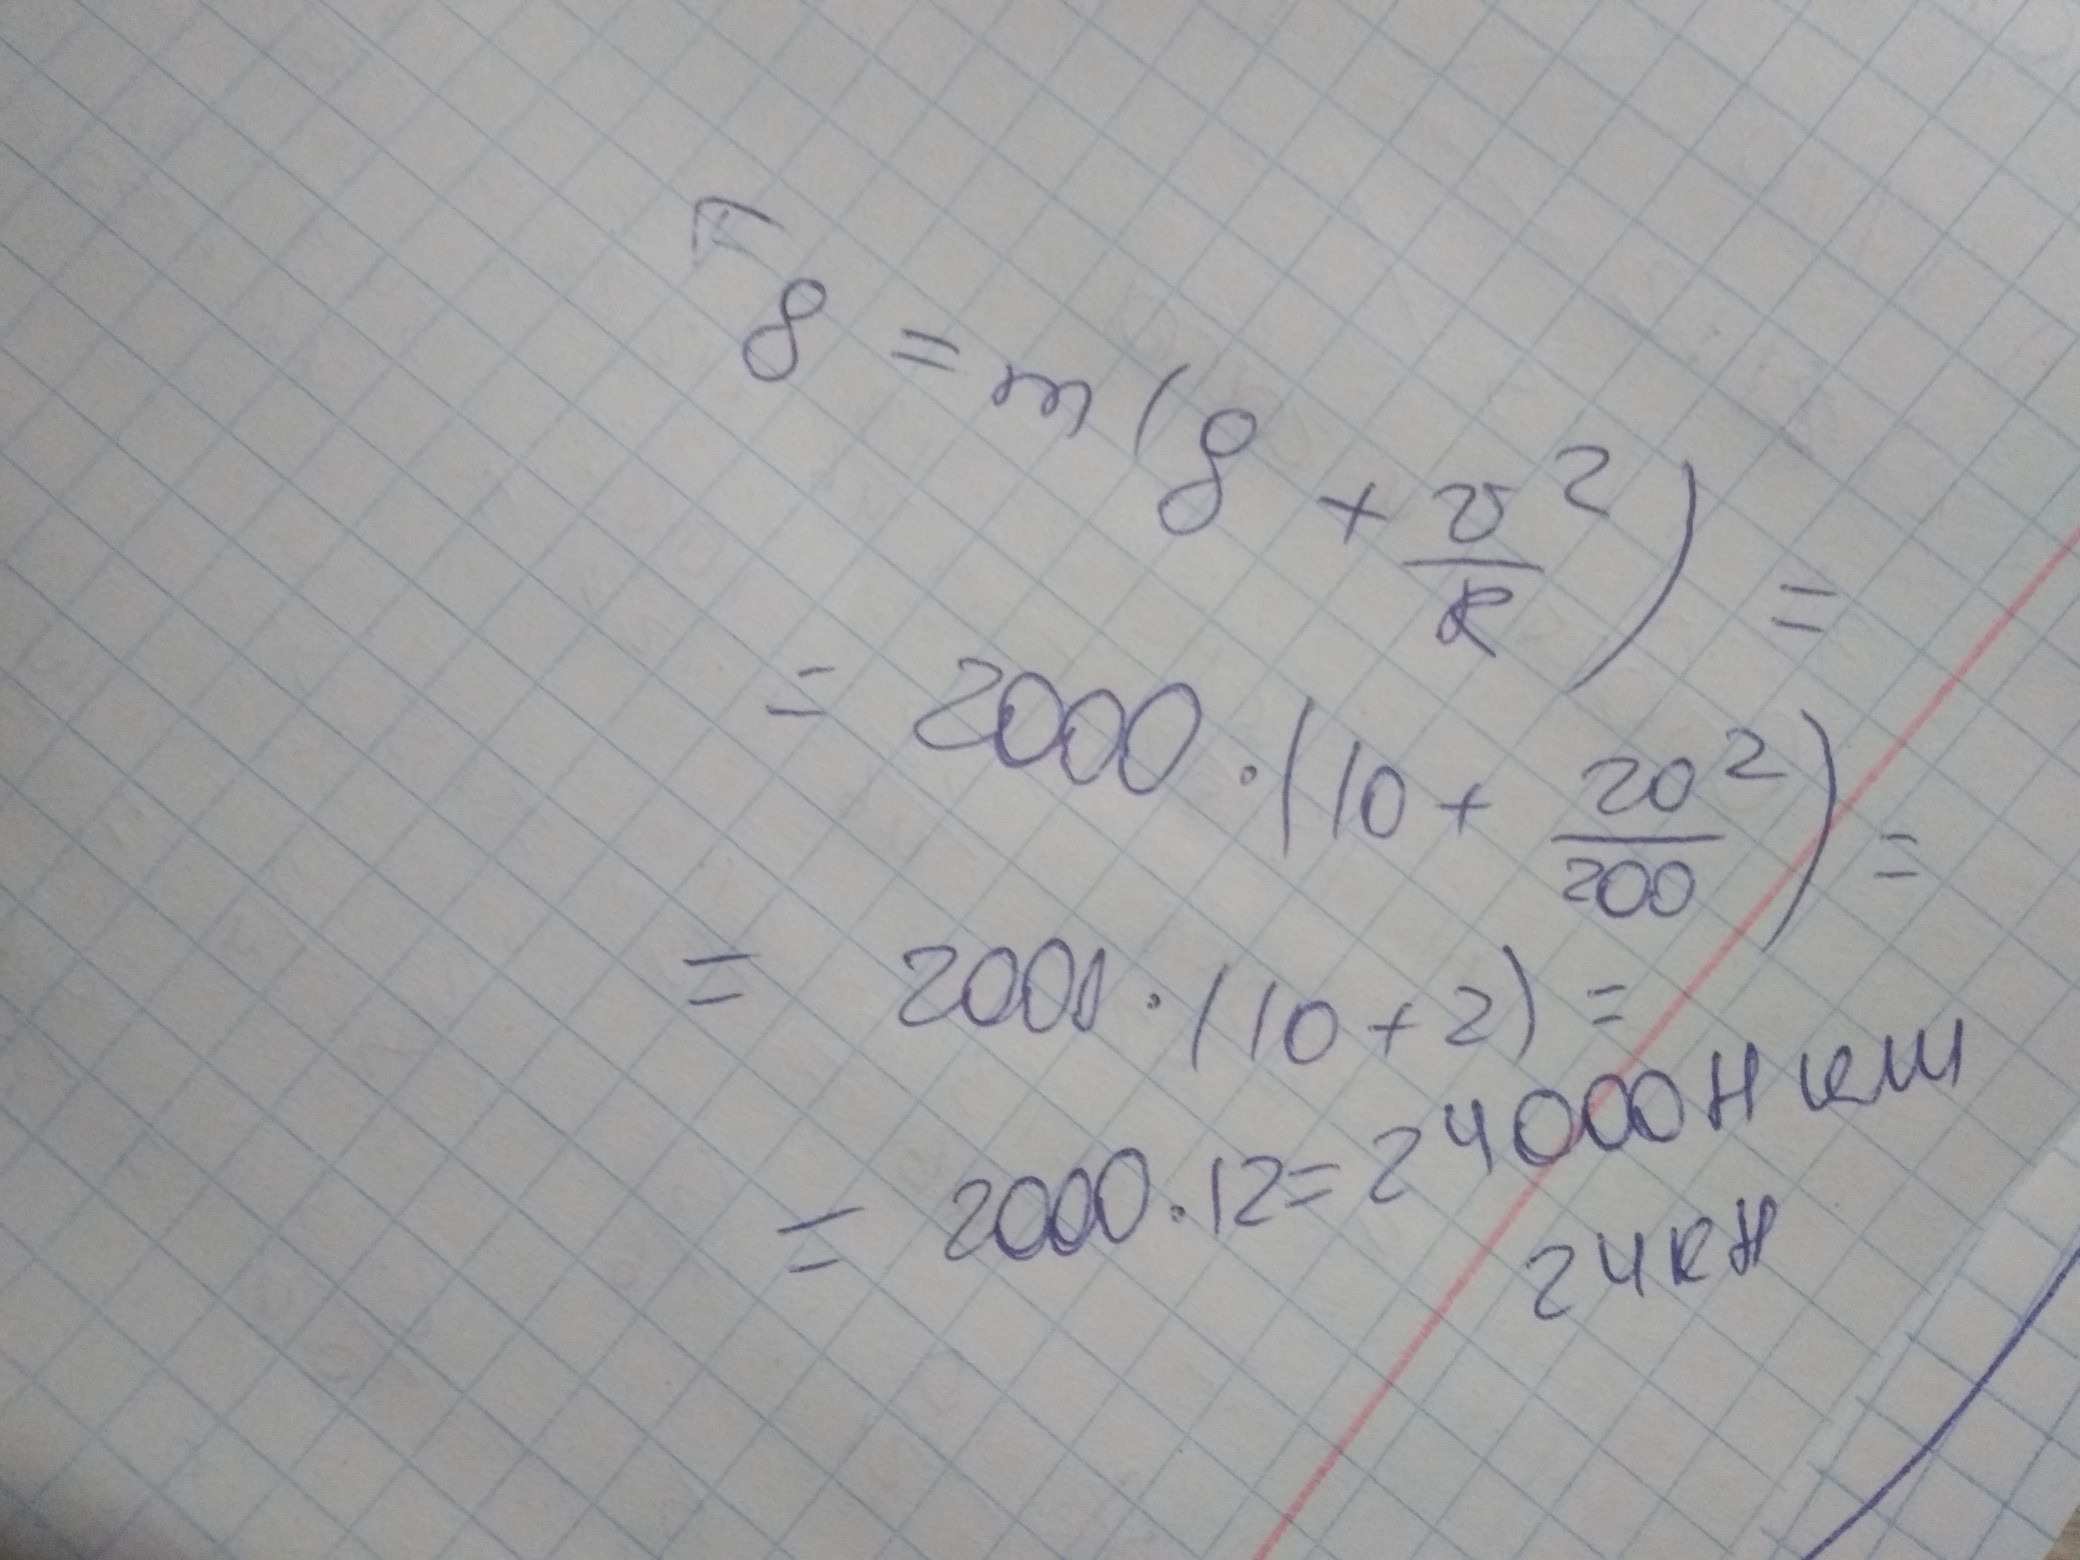 F₈ = m(g + v²/R) =
= 2000 · (10 + 20²/200) =
= 2000 · (10 + 2) =
= 2000 · 12 = 24000 Н или
24 кН